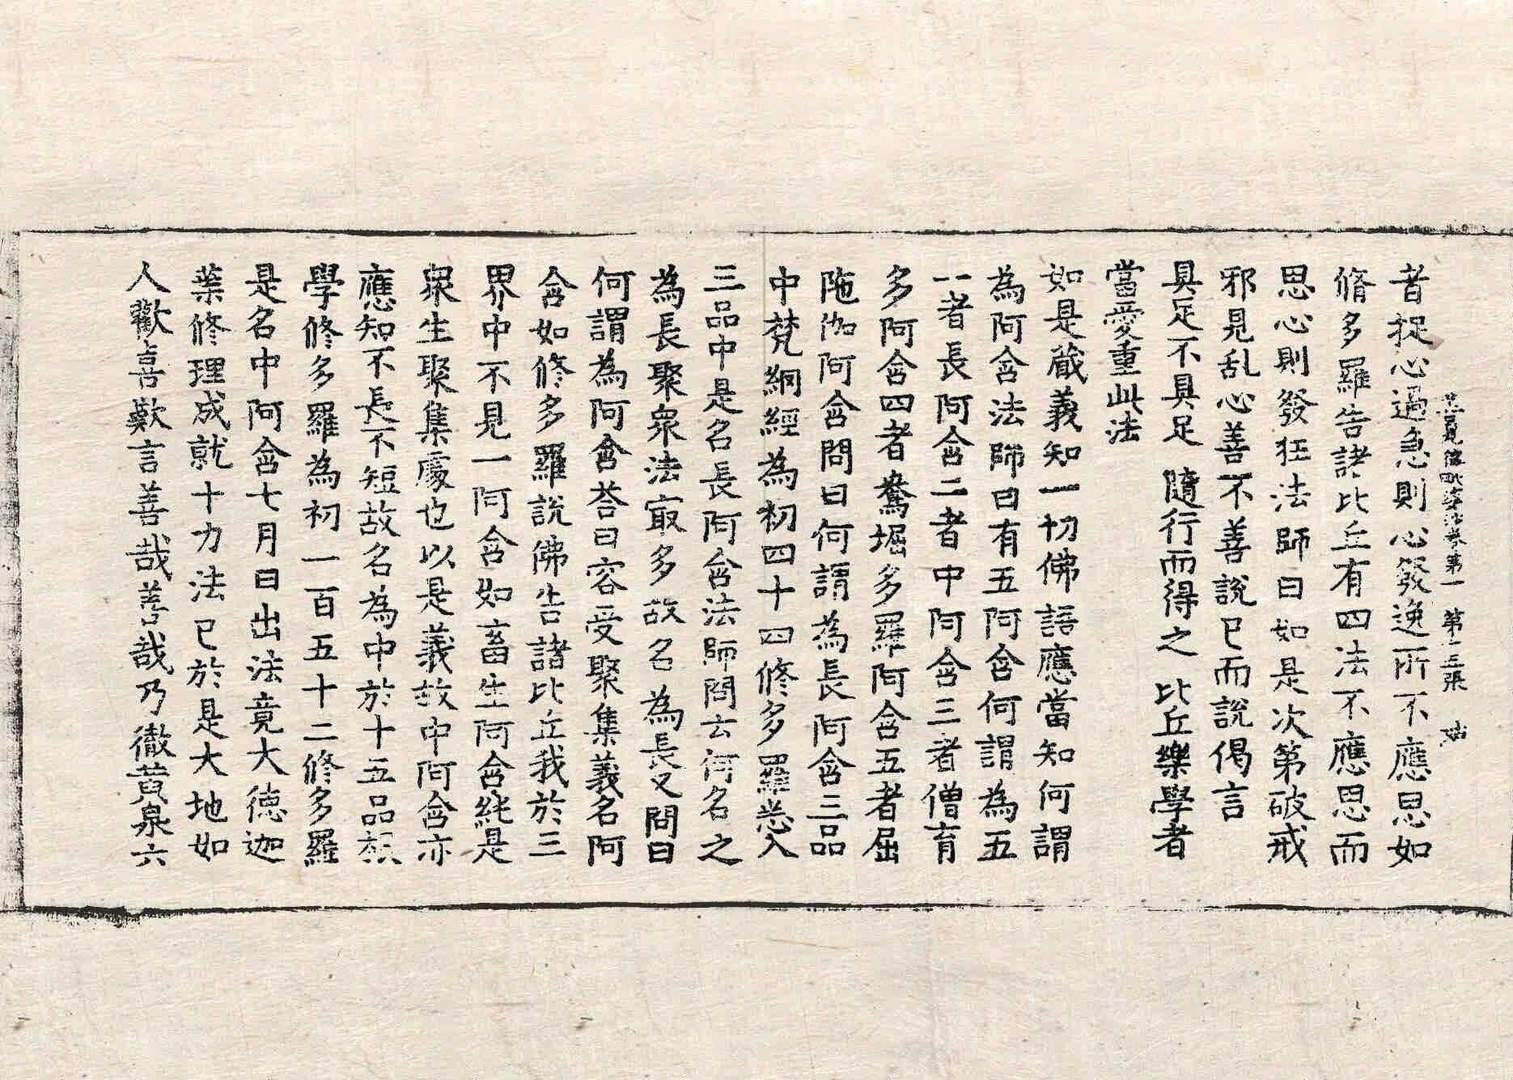 善見律毗婆沙卷第一　第十三張　姑
者捉心過急則心發逸所不應思如
脩多羅告諸比丘有四法不應思而
思心則發狂法師曰如是次第破戒
邪見乱心善不善說已而說偈言
具足不具足　隨行而得之　比丘樂學者
當愛重此法
如是藏義知一切佛語應當知何謂
為阿含法師曰有五阿含何謂為五
一者長阿含二者中阿含三者僧育
多阿含四者鴦堀多羅阿含五者屈
陁伽阿含問曰何謂為長阿含三品
中梵網經為初四十四修多羅悉入
三品中是名長阿含法師問云何名之
為長聚衆法㝡多故名為長又問曰
何謂為阿含荅曰容受聚集義名阿
含如修多羅說佛告諸比丘我於三
界中不見一阿含如畜生阿含純是
衆生聚集處也以是義故中阿含亦
應知不長不短故名為中於十五品根
學修多羅為初一百五十二修多羅
是名中阿含七月日出法竟大德迦
葉修理成就十力法已於是大地如
人歡喜歎言善哉善哉乃徹黄泉六